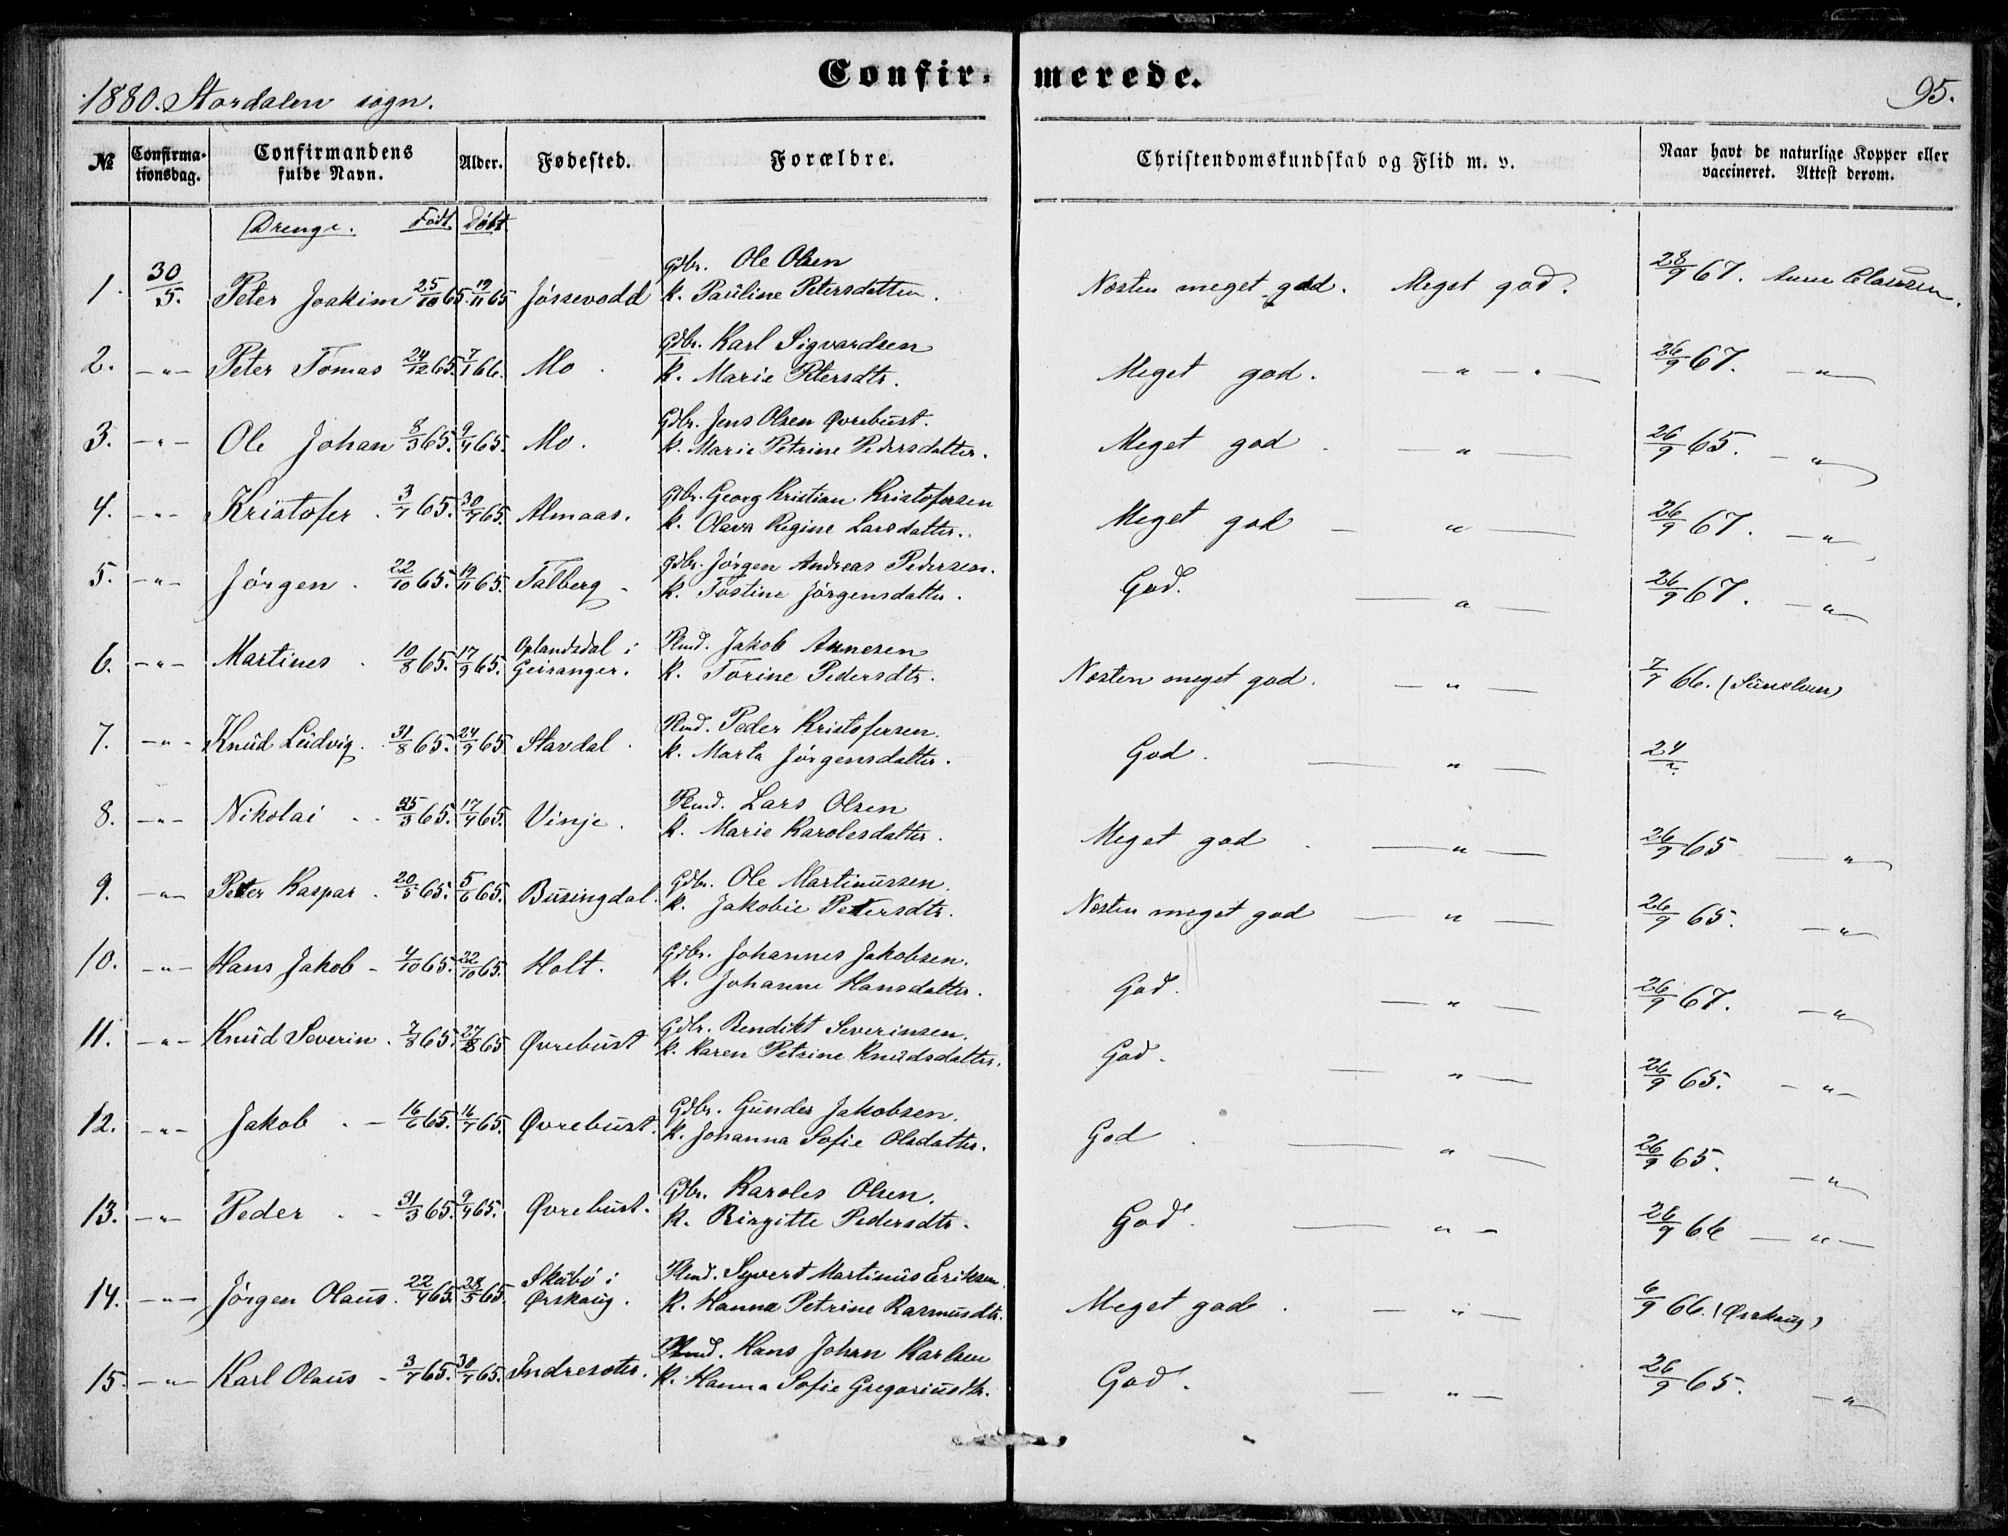 Confirmerede.
1880. Stordalen sogn.
95.
№ Confirmationsdag. Confirmandens fulde Navn. Alder. Fødested. Forældre. Christendomskundskab og Flid m. v. Naar havt de naturlige Kopper eller vaccineret. Attest derom.
Drenge. Født. Døbt
1. 30/5. Peter Joakim 25/10 65. 19/11 65 Jøssevodd Gdbr. Ole Olsen K. Pauline Petersdatter. Næsten meget god. Meget god. 28/9 67. Anne Clausen.
2. -"- Peter Tomas 24/12 65. 7/1 66. Mo. Gdbr. Karl Sigvardsen K. Marie Petersdtr. Meget god. -"-"- 26/9 67. -"-
3. -"- Ole Johan 8/3 65. 9/4 65. Mo. Gdbr. Jens Olsen Øvrebust. K. Marie Petrine Pedersdatter. Meget god. -"- 26/9 65. -"-
4. -"- Kristofer. 3/7 65. 30/7 65. Almaas. Gdbr. Georg Kristian Kristofersen K. Olava Regine Larsdatter. Meget god -"- 26/9 67. -"-
5. -"- Jørgen. 22/10 65. 19/11 65. Talberg. Gdbr. Jørgen Andreas Pedersen. K. Tostine Jørgensdatter. God. -"- 26/9 67. -"-
6. -"- Martines. 10/8 65. 17/9 65. Oplandsdal i Geiranger. Rmd. Jakob Annesen K. Torine Pedersdtr. Næsten meget god. -"- 7/7 66. (Sunelven)
7. -"- Knud Ludvig. 31/8 65. 24/9 65. Stavdal. Rmd. Peder Kristofersen. K. Marta Jørgensdatter. God. -"- 24/
8. -"- Nikolai. 25/3 65. 17/4 65. Vinje. Rmd. Lars Olsen K. Marie Karolesdatter. Meget god. -"- 26/9 65 -"-
9. -"- Peter Kaspar. 20/5 65. 5/6 65. Busingdal. Gdbr. Ole Martinussen. K. Jakobie Petersdtr. Næsten meget god -"- 26/9 65. -"-
10. -"- Hans Jakob - 4/10 65. 22/10 65. Holt. Gdbr. Johannes Jakobsen. K. Johanne Hansdatter. God. -"- 26/9 67. -"-
11. -"- Knud Severin. 7/8 65. 27/8 65 Øvrebust Gdbr. Bendikt Severinsen. K. Karen Petrine Knudsdatter. God. -"- 26/9 65. -"-
12. -"- Jakob. - 16/6 65. 16/7 65. Øvrebust. Gdbr. Gunder Jakobsen. K. Johanna Sofie Olsdatter. God. -"- 26/9 65. -"-
13. -"- Peder. - 31/3 65. 9/4 65. Øvrebust. Gdbr. Karoles Olsen. K. Birgitte Pedersdtr. God. -"- 26/9 66 -"-
14. -"- Jørgen Olaus. 22/4 65. 28/5 65. Skåbø i Ørskoug. Rmd. Syvert Martinus Eriksen. K. Hanna Petrine Rasmusdtr. Meget god. -"- 6/9 66. (Ørskoug)
15. -"- Karl Olaus - 3/7 65. 30/7 65. Indresæter. Rmd. Hans Johan Karlsen K. Hanna Sofie Gregoriusdtr. God. -"- 26/9 65. -"-